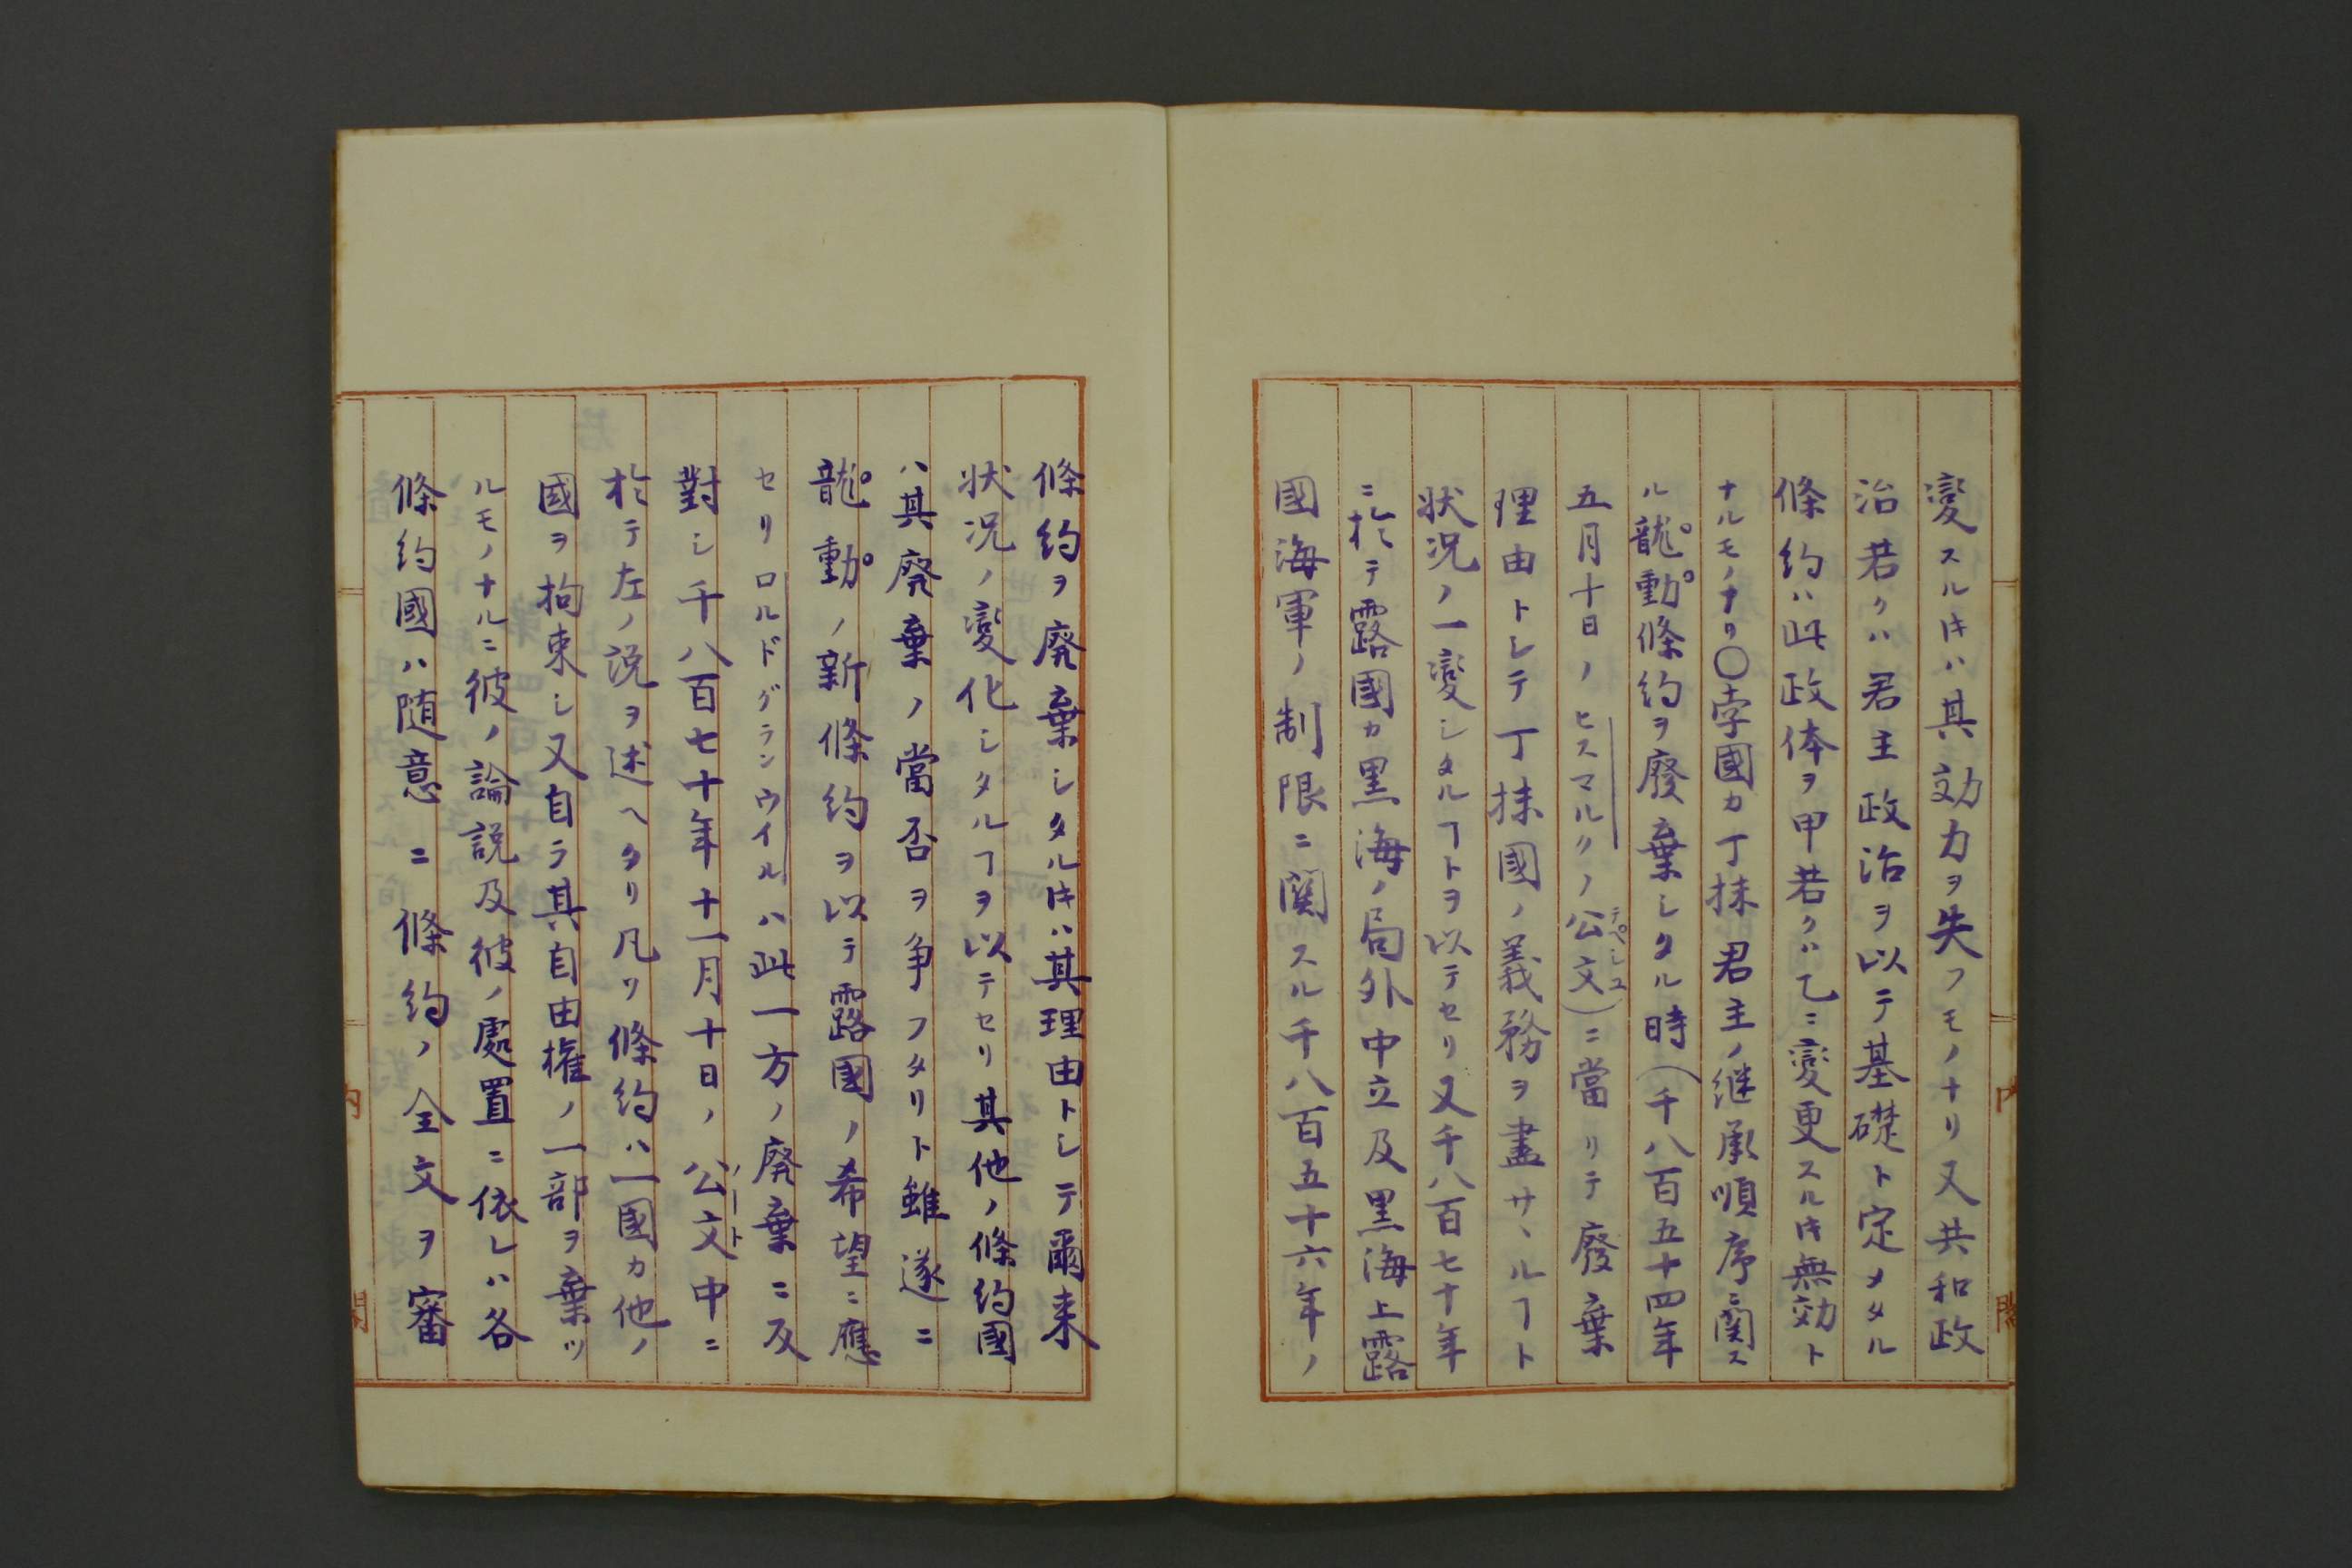 變スルトキハ其効力ヲ失フモノナリ又共和政
治若クハ君主政治ヲ以テ基礎ト定メタル
條約ハ此政体ヲ甲若クハ乙ニ變更スルトキ無効ト
ナルモノナリ〇孛國カ丁抹君主ノ継承順序ニ関ス
ル龍動條約ヲ廢棄シタル時(千八百五十四年
五月十日ノヒスマルクノ公文デペシユ)ニ當リテ廢棄
理由トシテ丁抹國ノ義務ヲ盡サヽルヿト
状况ノ一變シタルヿトヲ以テセリ又千八百七十年
ニ於テ露國カ黒海ノ局外中立及黒海上露
國海軍ノ制限ニ関スル千八百五十六年ノ
條約ヲ廃棄シタルトキハ其理由トシテ爾来
状况ノ變化シタルヿヲ以テセリ其他ノ條約國
ハ其廃棄ノ當否ヲ争フタリト雖遂ニ
龍動ノ新條約ヲ以テ露國ノ希望ニ應
セリロルドグランウイルハ此一方ノ廃棄ニ反
對シ千八百七十年十一月十日ノ公文ノート中ニ
於テ左ノ説ヲ述ヘタリ凡ソ條約ハ一國カ他ノ
國ヲ拘束シ又自ラ其自由權ノ一部ヲ棄ツ
ルモノナルニ彼ノ論説及彼ノ處置ニ依レハ各
條約國ハ随意ニ條約ノ全文ヲ審
内閣
内閣